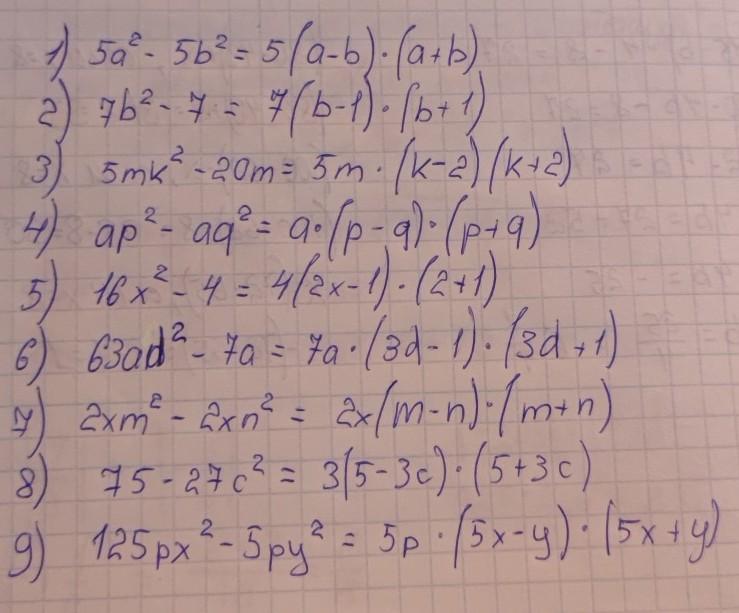 1) 5a² - 5b² = 5(a-b)·(a+b)
2) 7b² - 7 = 7(b-1)·(b+1)
3) 5mk² - 20m = 5m·(k-2)(k+2)
4) ap² - aq² = a·(p-q)·(p+q)
5) 16x² - 4 = 4(2x-1)·(2+1)
6) 63ad² - 7a = 7a·(3d-1)·(3d+1)
7) 2xm² - 2xn² = 2x(m-n)·(m+n)
8) 75 - 27c² = 3(5-3c)·(5+3c)
9) 125px² - 5py² = 5p·(5x-y)·(5x+y)